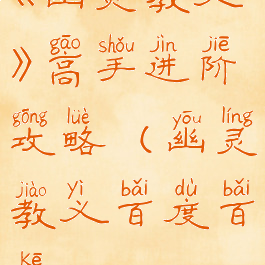 gāo shǒu jìn jiē
》高手进阶
gōng lüè yōu líng
攻略（幽灵
jiào yì bǎi dù bǎi
教义百度百
kē